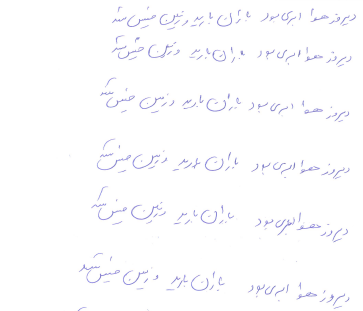 دیروز هوا ابری بود باران بارید و زمین خیس شد
دیروز هوا ابری بود باران بارید و زمین خیس شد
دیروز هوا ابری بود باران بارید و زمین خیس شد
دیروز هوا ابری بود باران بارید و زمین خیس شد
دیروز هوا ابری بود باران بارید زمین خیس شد
دیروز هوا ابری بود باران بارید و زمین خیس شد